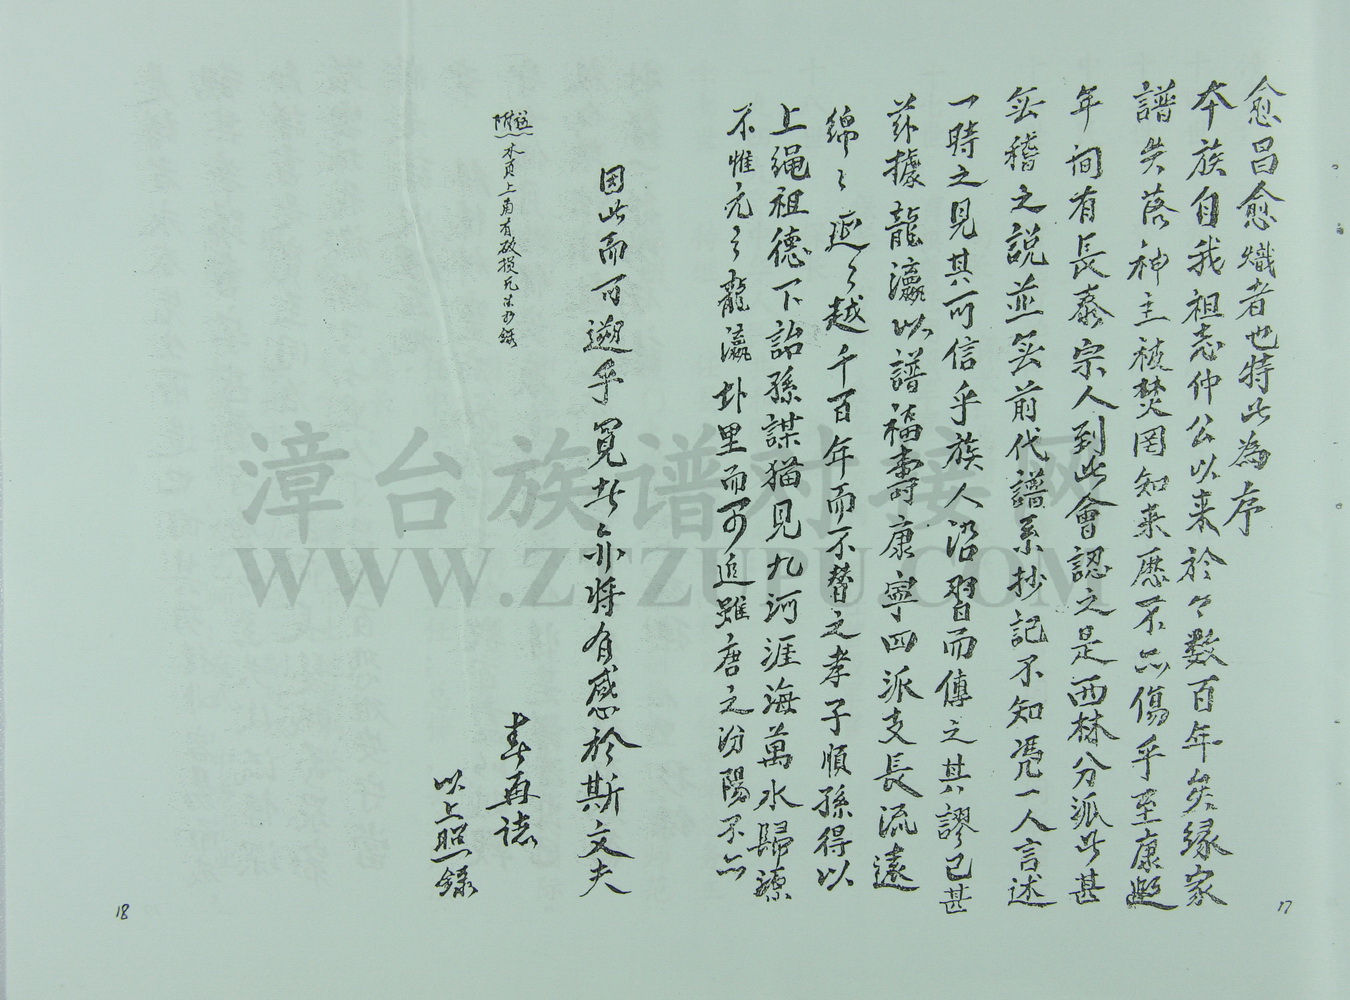 愈昌愈熾者也特此為序
本族自我祖志仲公以来於今数百年矣缘家
譜失落神主被焚罔知来歷不亦傷乎至康熙
年间有長泰宗人到此會認之是西林分派此甚
無稽之説並無前代譜系抄記不知馮一人言述
一時之見其可信乎族人沿習而傳之其謬已甚
茲據龍瀛以譜福壽康寧四派支長流遠
綿々延々越千百年而不替之孝子順孫得以
上绳祖德下詒孫謀猶見九河涯海萬水歸源
不惟尧之龍瀛卦里而可追雖唐之汾陽不亦
因此而可遡乎覓者亦将有感於斯文夫
本頁上角有破损无法抄錄
春再誌
以上照録
17
18
漳台族谱对接网
WWW.ZTZUPU.COM